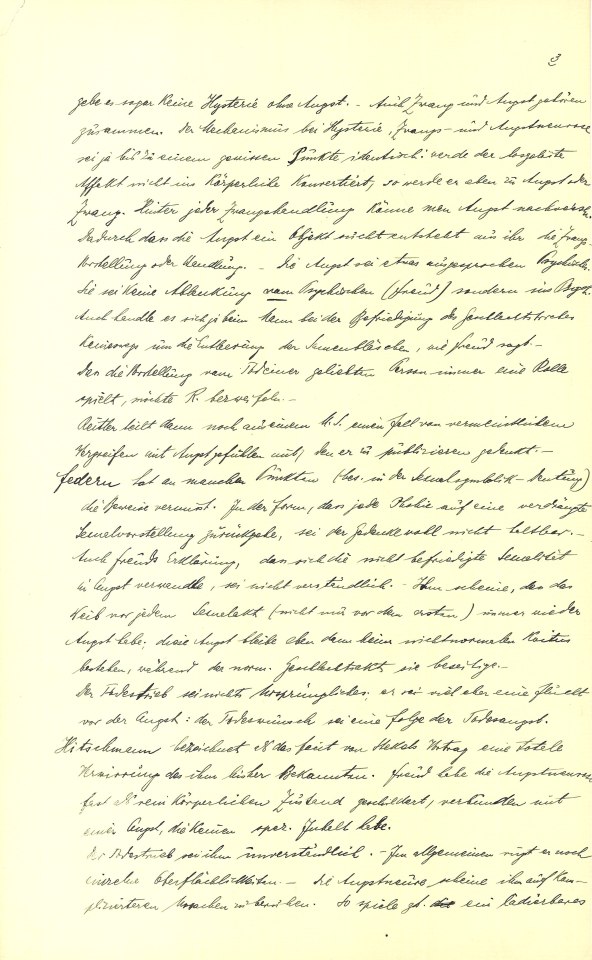 3
gebe es sogar keine Hysterie ohne Angst. – Auch Zwang und Angst gehören
zusammen. Der Mechanismus bei Hysterie, Zwangs- und Angstneurose
sei ja bis zu einem gewissen Punkte identisch: werde der losgelöste
Affekt nicht ins Körperliche konvertiert, so werde er eben zu Angst oder
Zwang. Hinter jeder Zwangshandlung könne man Angst nachweisen.
Dadurch dass die Angst ein Objekt sucht entsteht aus ihr die Zwangs-
vorstellung oder Handlung. – Die Angst sei etwas ausgesprochen Psychisches.
Sie sei keine Ablenkung vom Psychischen (Freud) sondern ins Psych.
Auch handle es sich ja beim Mann bei der Befriedigung des Geschlechtstriebes
keineswegs um die Entleerung der Samenbläschen, wie Freud sagt –
Dass die Vorstellung vom Tod einer geliebten Person immer eine Rolle
spielt, möchte R. bezweifeln. –
Reitler teilt dann noch aus einem M.S. einen Fall von vermeintlichem
Vergreifen mit Angstgefühlen mit, den er zu publizieren gedenkt. –
Federn hat an manchen Punkten (bes. in der Sexualsymbolik-Deutung)
die Beweise vermisst. In der Form, dass jede Phobie auf eine verdrängte
Sexualvorstellung zurückgehe, sei der Gedanke wohl nicht haltbar. –
Auch Freuds Erklärung, dass sich die nicht befriedigte Sexualität
in Angst verwandle, sei nicht verständlich. – Ihm scheine, dass das
Weib vor jedem Sexualakt (nicht nur vor dem ersten) immer wieder
Angst habe; diese Angst bleibe eben dann beim nichtnormalen Koitus
bestehen, während der norm. Geschlechtsakt sie beseitige. –
Der Todestrieb sei nichts Ursprüngliches, er sei viel eher eine Flucht
vor der Angst: der Todeswunsch sei eine Folge der Todesangst.
Hitschmann bezeichnet als das Fazit von Stekels Vortrag eine totale
Verwirrung des ihm bisher Bekannten. Freud habe die Angstneurose
fast als rein körperlichen Zustand geschildert, verbunden mit
einer Angst, die keinen spez. Inhalt habe.
Der Todestrieb sei ihm unverständlich. – Im allgemeinen rügt er noch
einzelne Oberflächlichkeiten. – Die Angstneurose scheine ihm auf kom-
plizierteren Ursachen zu beruhen. So spiele ein lädierbares